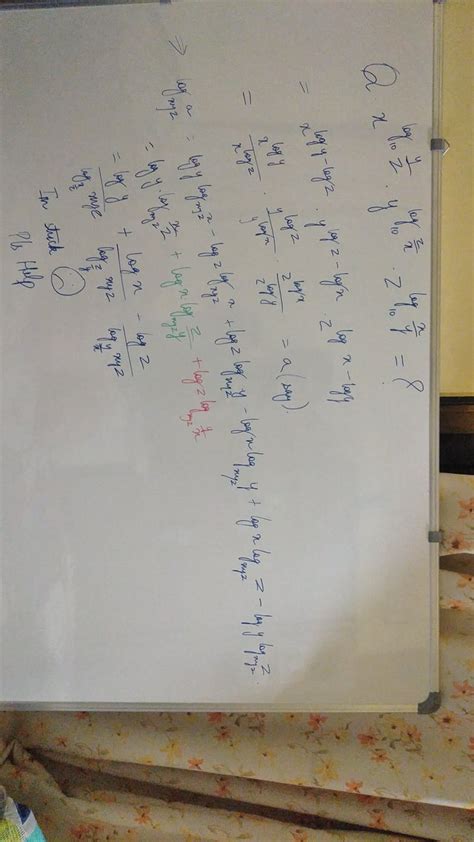 Q x^{log_{10} y/z} · y^{log_{10} z/x} · z^{log_{10} x/y} = ?
= x^{log y - log z} · y^{log z - log x} · z^{log x - log y}
= \frac{x^{log y}}{x^{log z}} · \frac{y^{log z}}{y^{log x}} · \frac{z^{log x}}{z^{log y}} = a (say).
⇒ log_{xyz} a = log y log_{xyz} x - log z log_{xyz} x + log z log_{xyz} y - log x log_{xyz} y + log x log_{xyz} z - log y log_{xyz} z.
= log y · log_{xyz} x/z + log x log_{xyz} z/y + log z log_{xyz} y/x
= \frac{log y}{log_{x/z} xyz} + \frac{log x}{log_{z/y} xyz} - \frac{log z}{log_{y/x} xyz}
I'm stuck
Pls Help